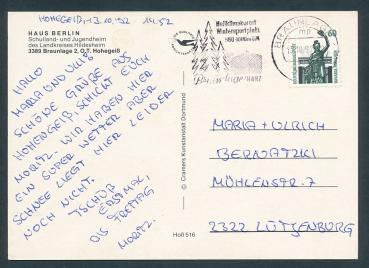 HOHEGEIß, 13.10.92 14.52
HAUS BERLIN
Schulland- und Jugendheim
des Landkreises Hildesheim
3389 Braunlage 2, O.T. Hohegeiß
HALLO
MARIA UND ULLI!
SCHÖNE GRÜßE AUS
HOHENGEIß, SCHICKT EUCH
MORITZ. WIR HABEN HIER
EIN SUPER WETTER ABER
SCHNEE LIEGT HIER LEIDER
NOCH NICHT.
TSCHÜß
ERSTMAL,
BIS FREITAG
MORITZ.
Hoß 516
© Cramers Kunstanstalt Dortmund
Heilklimakurort
Wintersportplatz
BRAUNLAGE
mp
60
MARIA + ULRICH
BERNATZKI
MÜHLENSTR. 7
2322 LÜTJENBURG